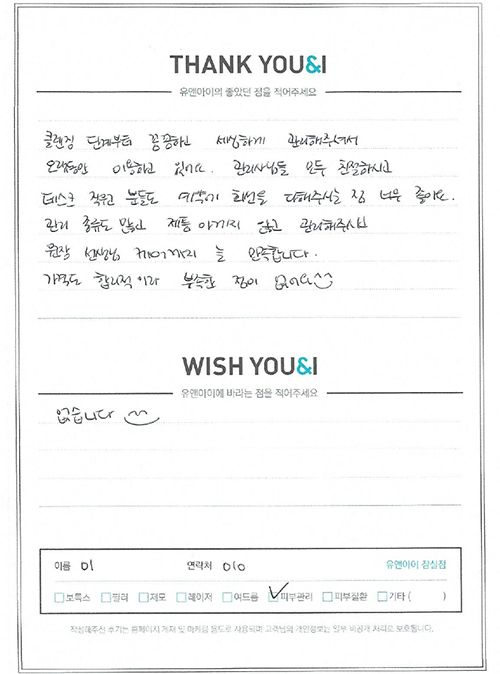 THANK YOU&I
유앤아이의 좋았던 점을 적어주세요
클렌징 단계부터 꼼꼼하고 세심하게 관리해주셔서
오랫동안 이용하고 있어요. 관리사님들 모두 친절하시고
데스크 직원 분들도 예쁘게 최선을 다해주시는 점 너무 좋아요.
관리 종류도 많고 제품 아끼지 않고 관리해주시니
원장 선생님 케어까지 늘 만족합니다.
가격도 합리적이라 부족한 점이 없어요
WISH YOU&I
유앤아이에 바라는 점을 적어주세요
없습니다
이름 이 연락처 010 유앤아이 잠실점
보톡스 필러 제모 레이저 여드름 피부관리 피부질환 기타 ( )
작성해주신 후기는 홈페이지 게재 및 마케팅 용도로 사용되며 고객님의 개인정보는 일부 비공개 처리로 보호됩니다.